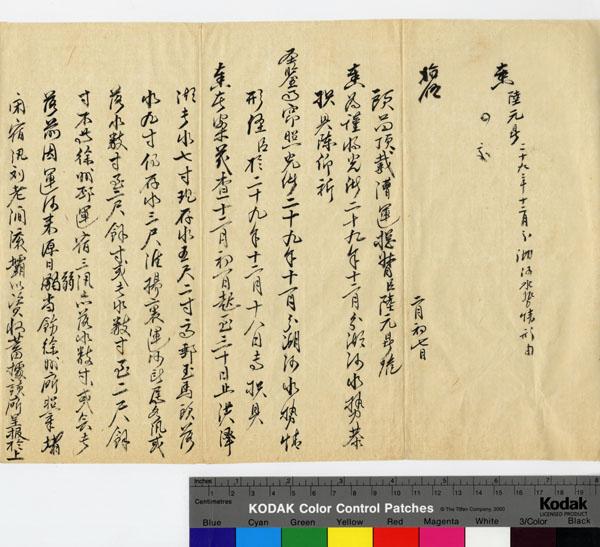 奏 陸元鼎 二十九年十二月分湖河水勢情形由
二月初七日
頭品頂戴漕運總督臣陸元鼎跪
奏為謹將光緒二十九年十二月分湖河水勢恭
摺具陳仰祈
聖鑒事竊照光緒二十九年十一月分湖河水勢情
形經臣於二十九年十二月十八日專摺具
奏在案茲查十二月初一日起至三十日止洪澤
湖水七寸現存水五尺二寸高郵至馬頭落
水九寸仍存水三尺淮揚裏運河各汛或
落水數寸至二尺餘寸或長水數寸至二尺餘
寸不等徐州邳運宿三汛亦落水數寸或無長
落前因運河來源日弱當飭徐州廳照章堵
閉宿汛劉老澗滾壩以資收蓄據該廳呈報於上
Inches 1 2 3 4 5 6 7 8
Centimetres 1 2 3 4 5 6 7 8 9 10 11 12 13 14 15 16 17 18 19
KODAK Color Control Patches © The Tiffen Company, 2000
Kodak LICENSED PRODUCT
Blue Cyan Green Yellow Red Magenta White 3/Color Black